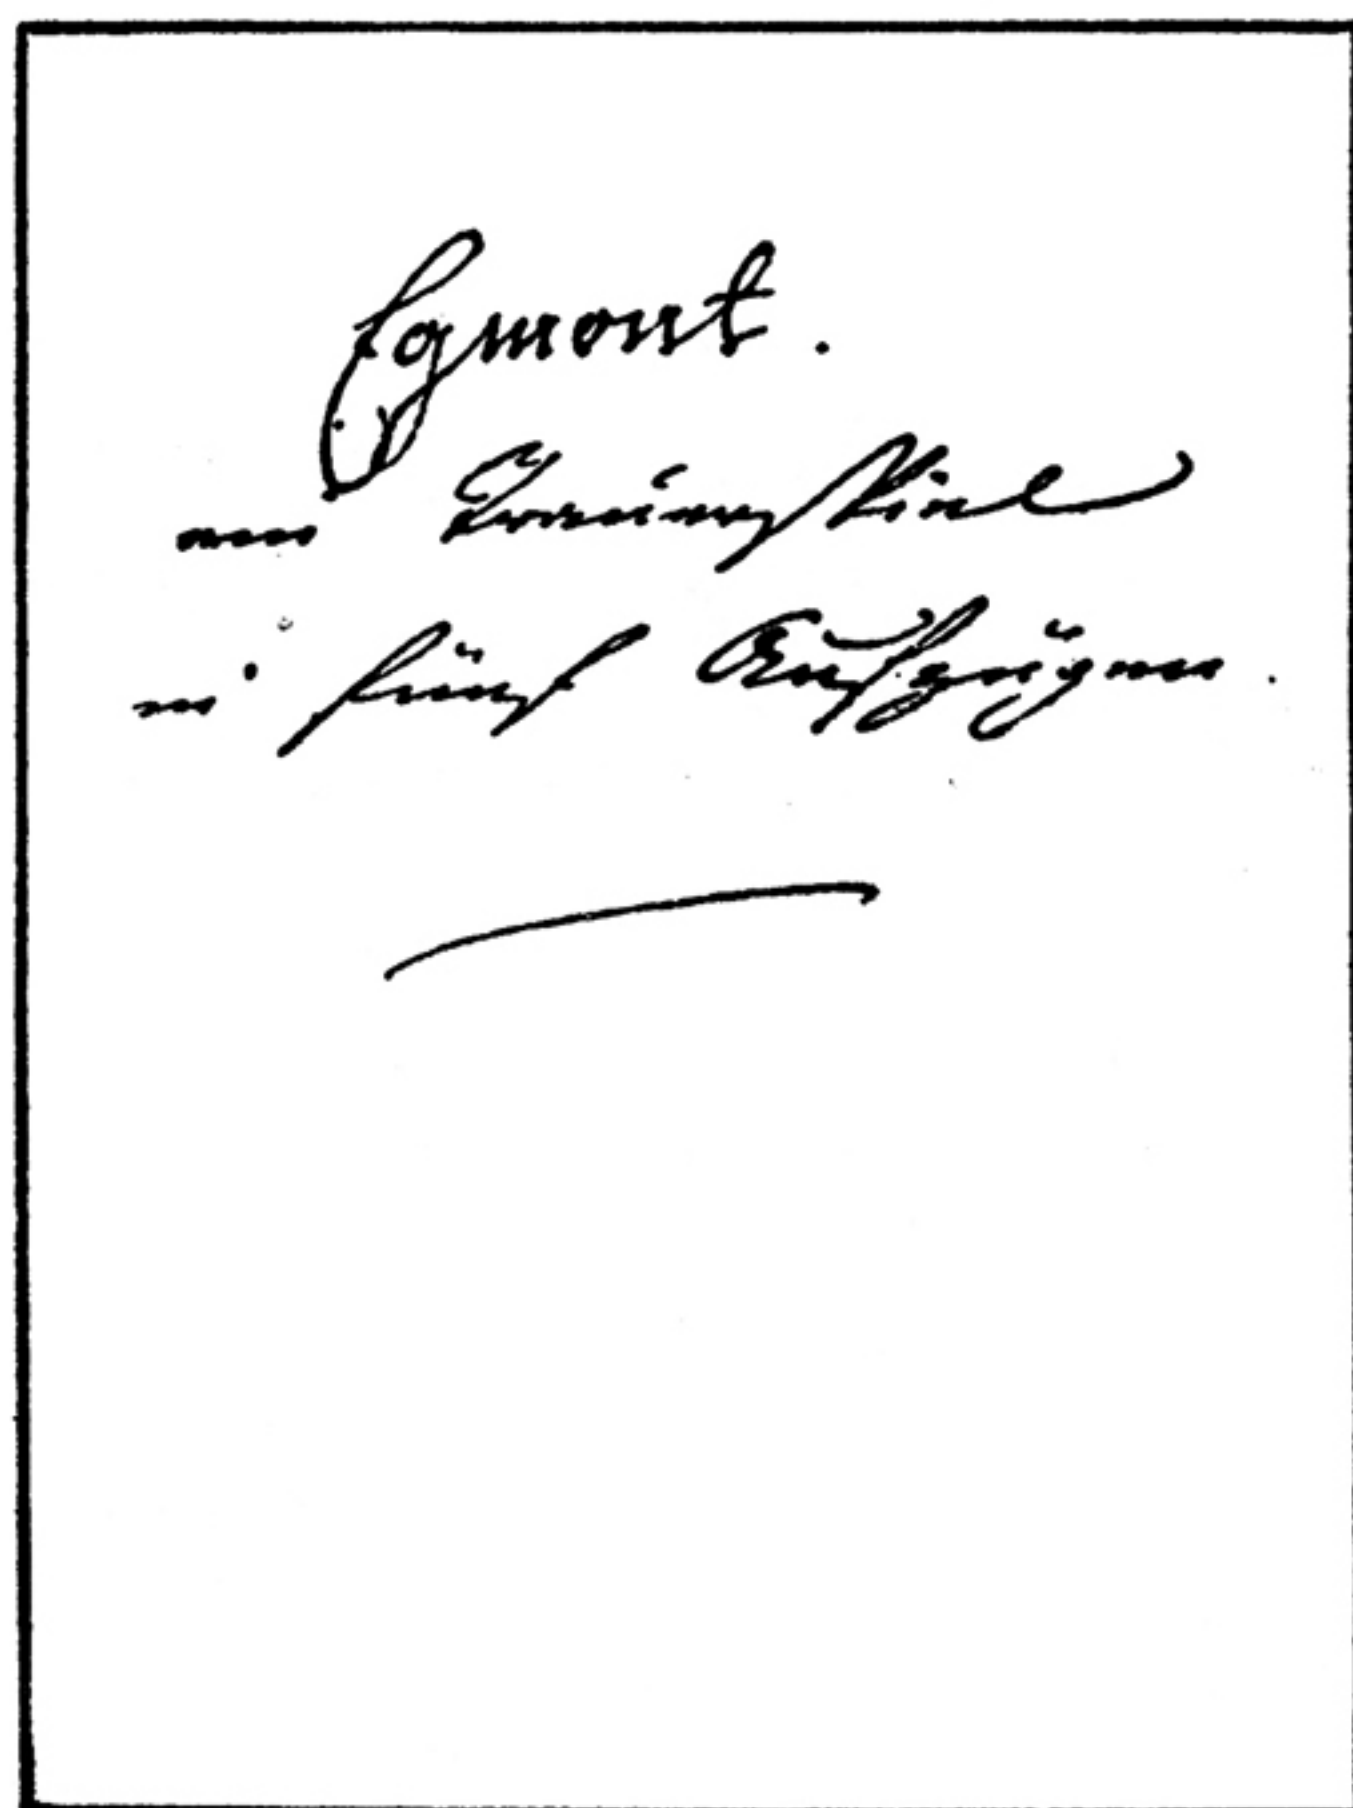 Egmont.
ein Trauerspiel
in fünf Aufzügen.